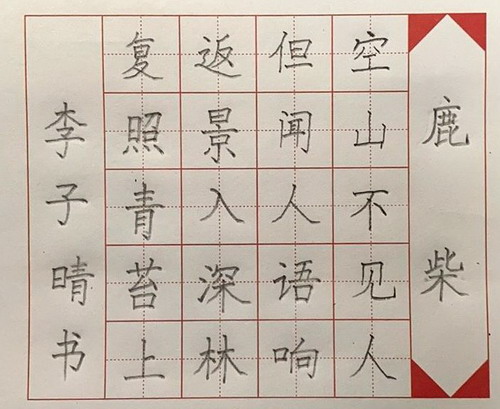 鹿柴
空山不见人
但闻人语响
返景入深林
复照青苔上
李子晴书